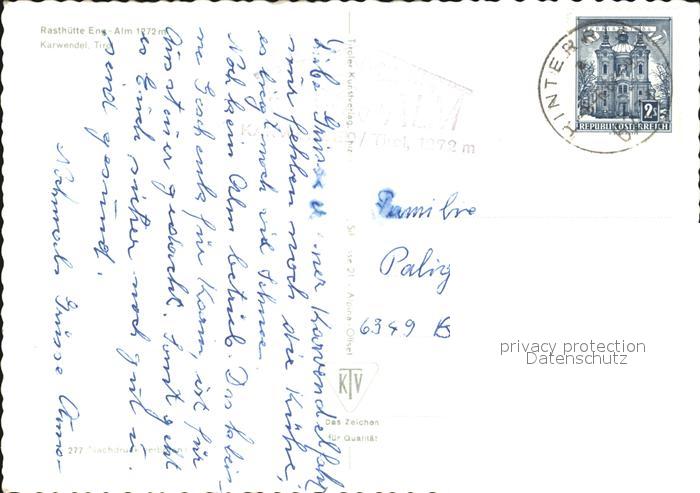 Rasthütte Eng-Alm 1272 m
Karwendel, Tirol
Liebe Grüsse v. einer Karwendelfahrt
mir fehlen noch die Kühe,
es liegt noch viel Schnee.
Noch kein Alm betrieb. Das kleine
Geschenk für Karin, ist für
gedacht. Sonst geht
es Euch sicher noch gut u.
seid gesund.
Nochmals Grüsse
277 Nachdruck verboten
Tiroler Kunstverlag Chizzali
Alpina-Offset
KTV
Das Zeichen
für Qualität
ALM
/ Tirol, 1272 m
HINTERRISS
2 S
REPUBLIK ÖSTERREICH
Familie
Palig
6349 B
privacy protection
Datenschutz